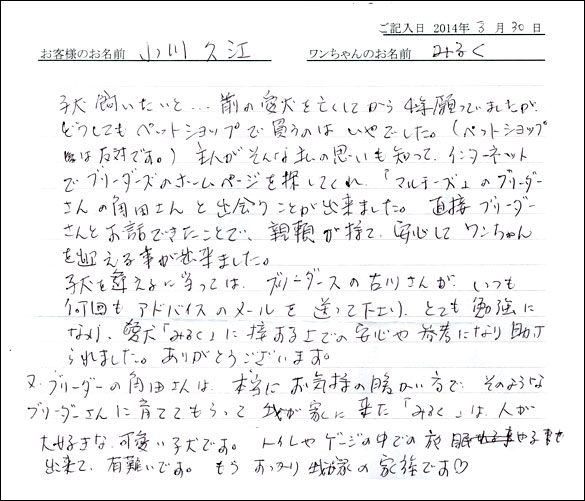 ご記入日 2014年 3月 30日
お客様のお名前 小川 久江 ワンちゃんのお名前 みるく
子犬飼いたいと…前の愛犬を亡くしてから4年願っていましたが
どうしてもペットショップで買うのはいやでした。(ペットショップ
には反対です。) 主人がそんな私の思いも知って、インターネット
でブリーダーズのホームページを探してくれ、「マルチーズ」のブリーダー
さんの角田さんと出会うことが出来ました。直接ブリーダー
さんとお話できたことで、親頼が持て、安心してワンちゃん
を迎える事が出来ました。
子犬を迎えるに当っては、ブリーダースの古川さんが、いつも
何回もアドバイスのメールを送って下さり、とても勉強に
なり、愛犬「みるく」に接する上での安心や参考になり助け
られました。ありがとうございます。
又、ブリーダーの角田さんは、本当にお気持の暖かい方で、そのような
ブリーダーさんに育ててもらって我が家に来た「みるく」は、人が
大好きな可愛い子犬です。トイレやゲージの中での
出来て、有難いです。もうすっかり我家の家族です♡